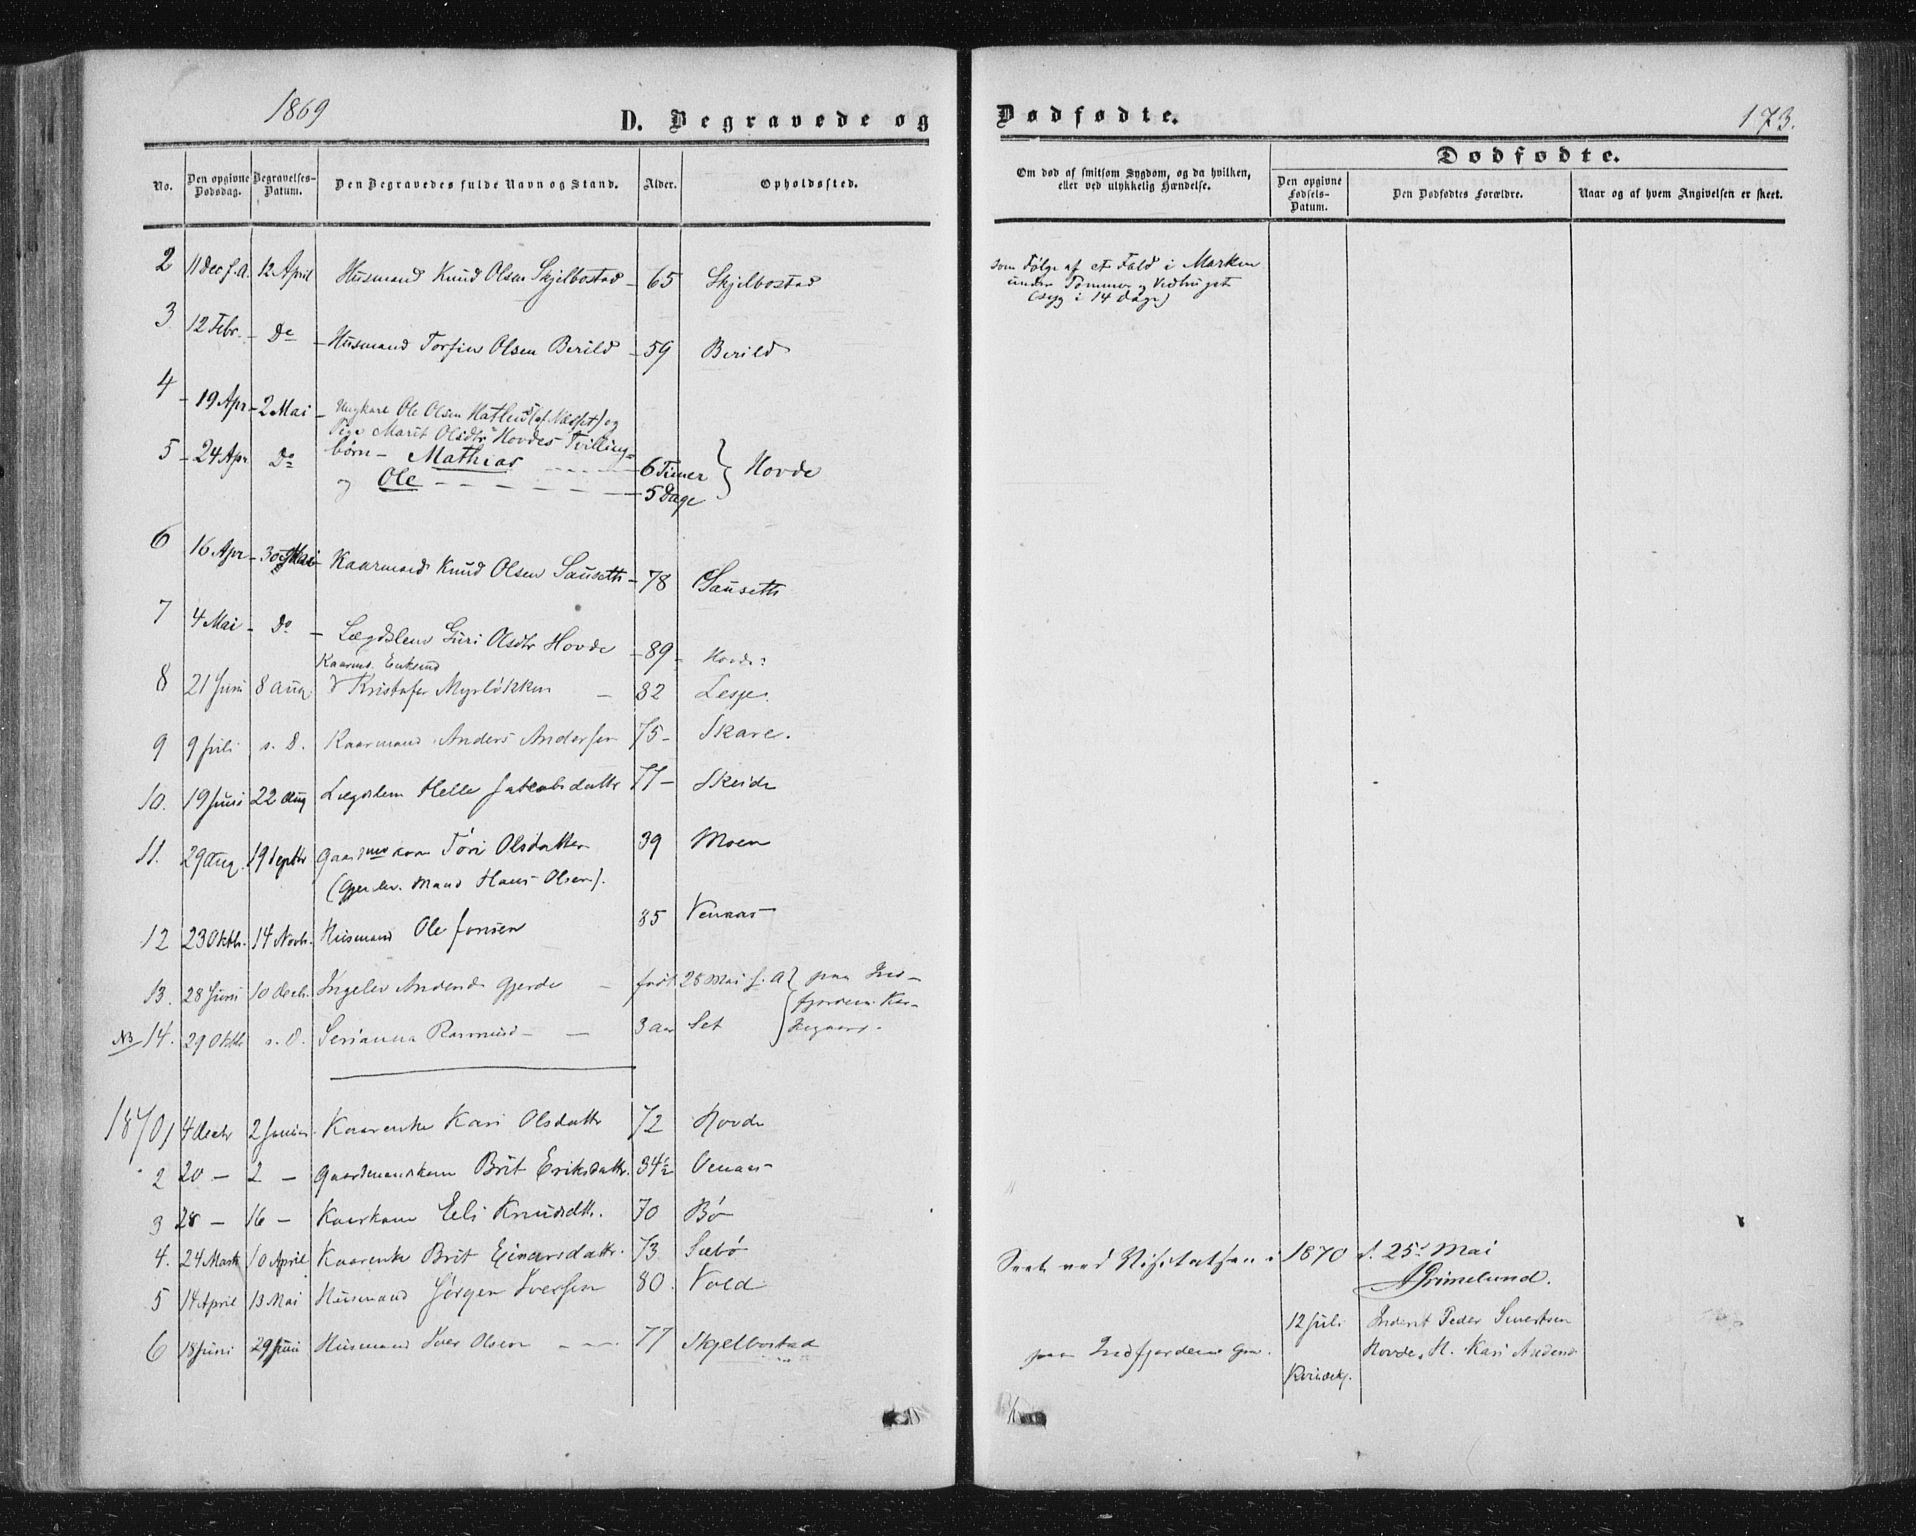 1869
D. Begravede og
Dødfødte.
173.
No. Den opgivne Dødsdag. Begravelses-Datum. Den Begravedes fulde Navn og Stand. Alder. Opholdssted.
Om død af smitsom Sygdom, og da hvilken, eller ved ulykkelig Hændelse.
Dødfødte.
Den opgivne Fødsels-Datum. Den Dødfødtes Forældre. Naar og af hvem Angivelsen er skeet.
2 11 Dec f.A. 12 April Husmand Knud Olsen Skjelbostad 65 Skjelbostad
som Følge af et Fald i Marken
under Tømmer og Vedhugst
(syg i 14 Dage)
3 12 Febr. Do Husmand Torfin Olsen Berild 59 Berild
4 19 Apr 2 Mai Ungkarl Ole Olsen (af Næsset) og
Pige Marit Olsdtr Hovdes Tvilling=
5 24 Apr Do børn Mathias 6 Timer
og Ole 5 Dage Hovde
6 16 Apr 30 Mai Kaarmand Knud Olsen Sauseth 78 Sauseth
7 4 Mai Do Lægdslem Guri Olsdtr Hovde 89 Hovde
8 21 Juni 8 Aug Kaarmd. Enkemd Kristofer Myrløkken 82 Lesje.
9 9 Juli s. D. Kaarmand Anders Andersen 75 Skare.
10. 19 Juni 22 Aug Lægdslem Helle Jakobsdatter 77 Skeide
11. 29 Aug. 19 Septbr Gaardmds kone Tóri Olsdatter 39 Moen
(Gjenlev. Mand Hans Olsen).
12 23 Oktb. 14 Novb. Husmand Ole Jonsen 85 Venaas
13. 28 Juni 10 Decb. Ingelev Andersd. Gjerde født 28 Mai f. A. paa Ind-
fjordens Kir-
kegaard.
NB 14. 29 Oktb s. D. Serianna Rasmusd 3 aar Set
1870 1 4 Decbr 2 Januar Kaarenke Kari Olsdatter 72 Hovde
2 20 — 2 — Gaardmandskone Brit Eriksdatter. 34½ Venaas
3 28 — 16 — Kaarkone Eli Knudsdtr. 70 Bø
4. 24 Marts 10 April Kaarenke Brit Einarsdatter. 73 Sæbø
Seet ved Visitatsen i 1870 d. 25de Mai
AGrimelund.
5 14 April 13 Mai Husmand Jørgen Iversen 80. Vold
6 18 Juni 29 Juni Husmand Iver Olsen 77 Skjelbostad
paa Indfjordens 12 Juli Inderst Peder Sivertsen
Hovde, H. Kari Andersd